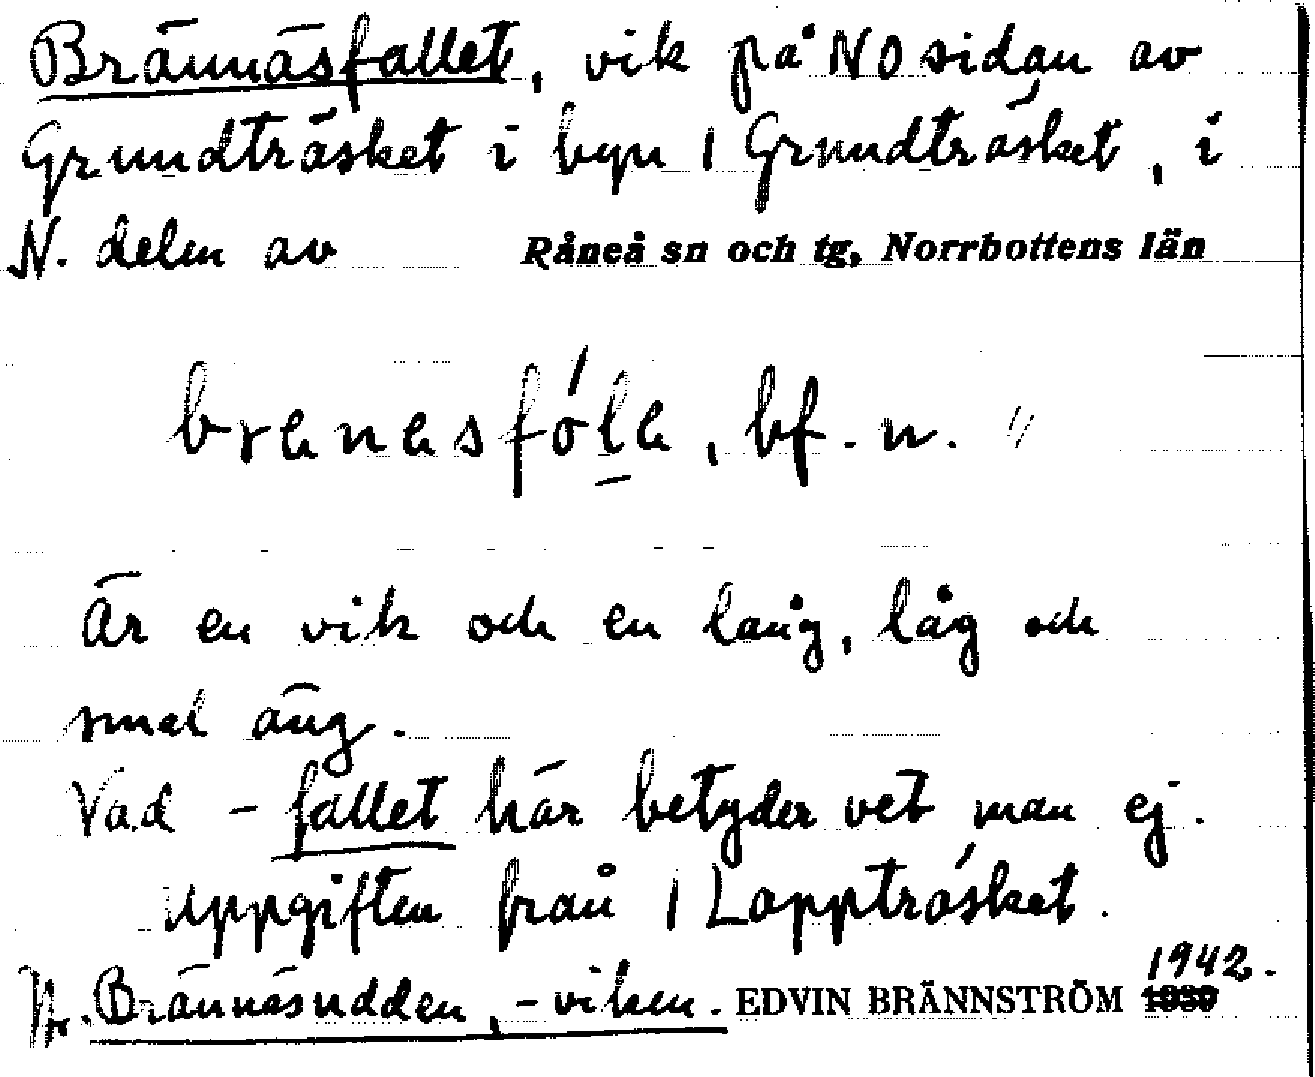 Brännäsfallet, vik på NO sidan av
Grundträsket i byn 1 Grundträsket, i
N. delen av Råneå sn och tg, Norrbottens län
bf. n.
Är en vik och en lång, låg och
smal äng.
Vad -fallet här betyder vet man ej.
Uppgiften från 1 Lappträsket.
Brännäsudden, -viken. EDVIN BRÄNNSTRÖM 1942.